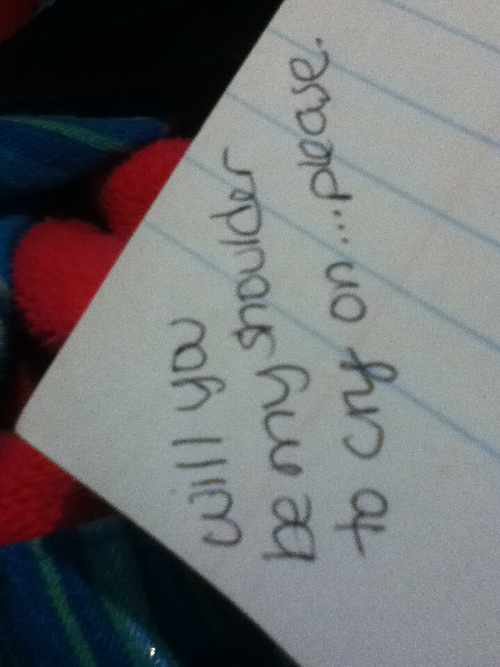 will you
be my shoulder
to cry on...please.